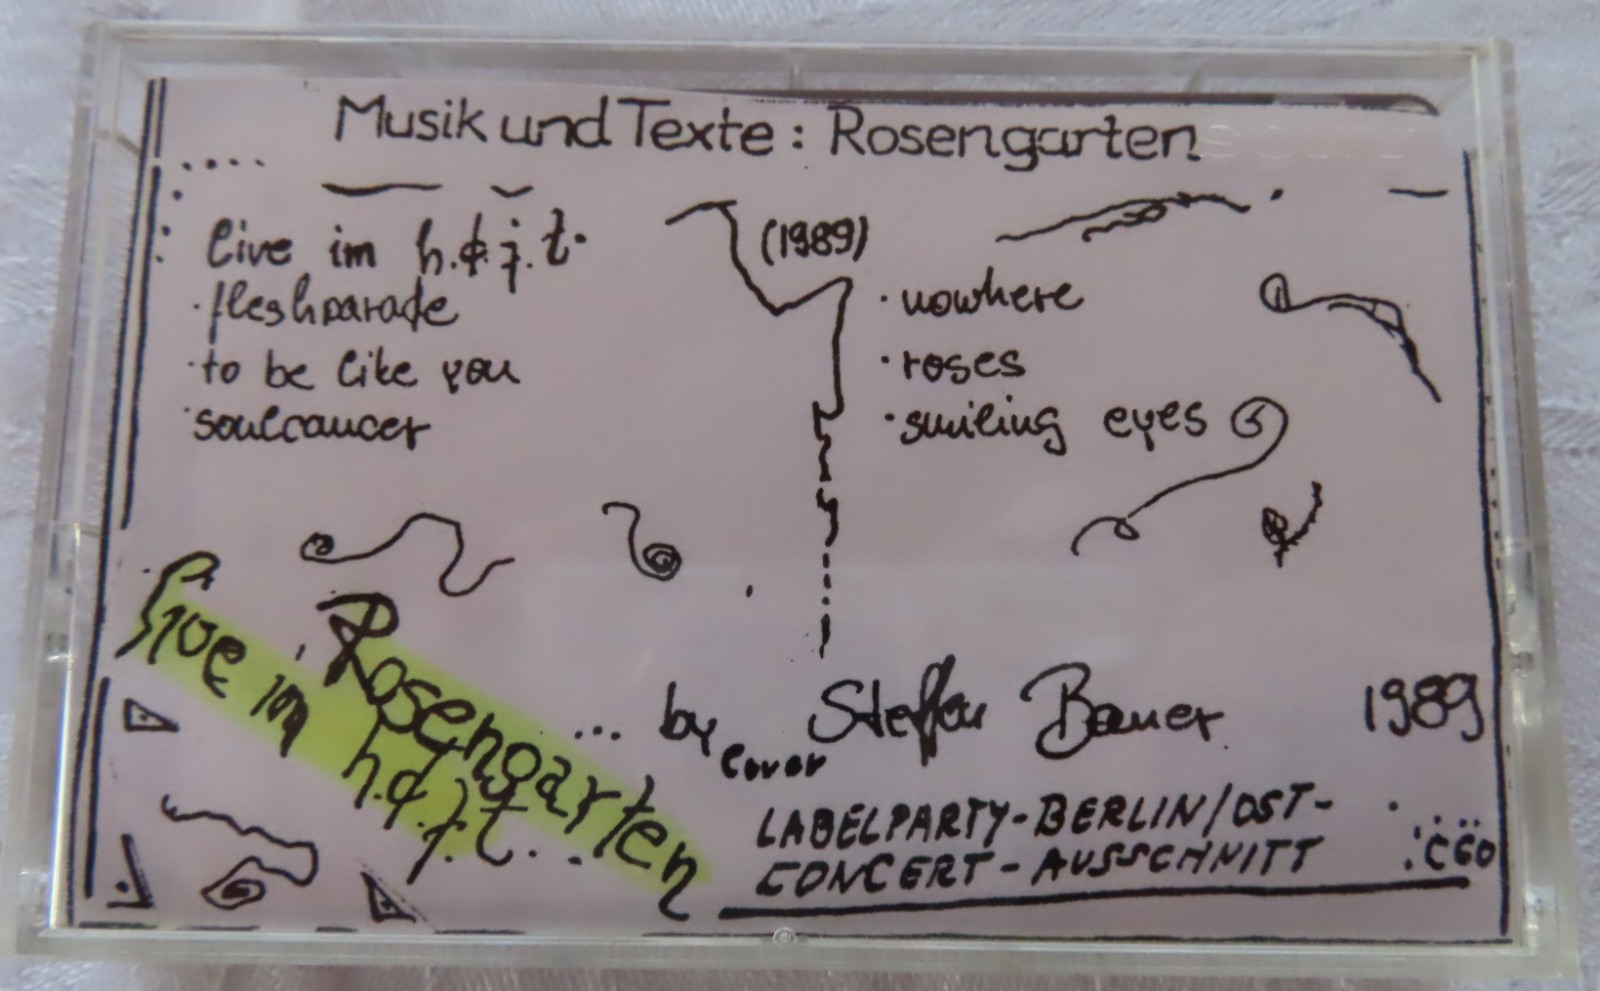 Musik und Texte: Rosengarten
live im h.d.j.t.
(1989)
· fleshparade
· to be like you
· soulcancer
· nowhere
· roses
· smiling eyes
Rosengarten
live im h.d.j.t...
... by Steffen Bauer 1989
cover
LABELPARTY-BERLIN/OST-
CONCERT-AUSSCHNITT
C60